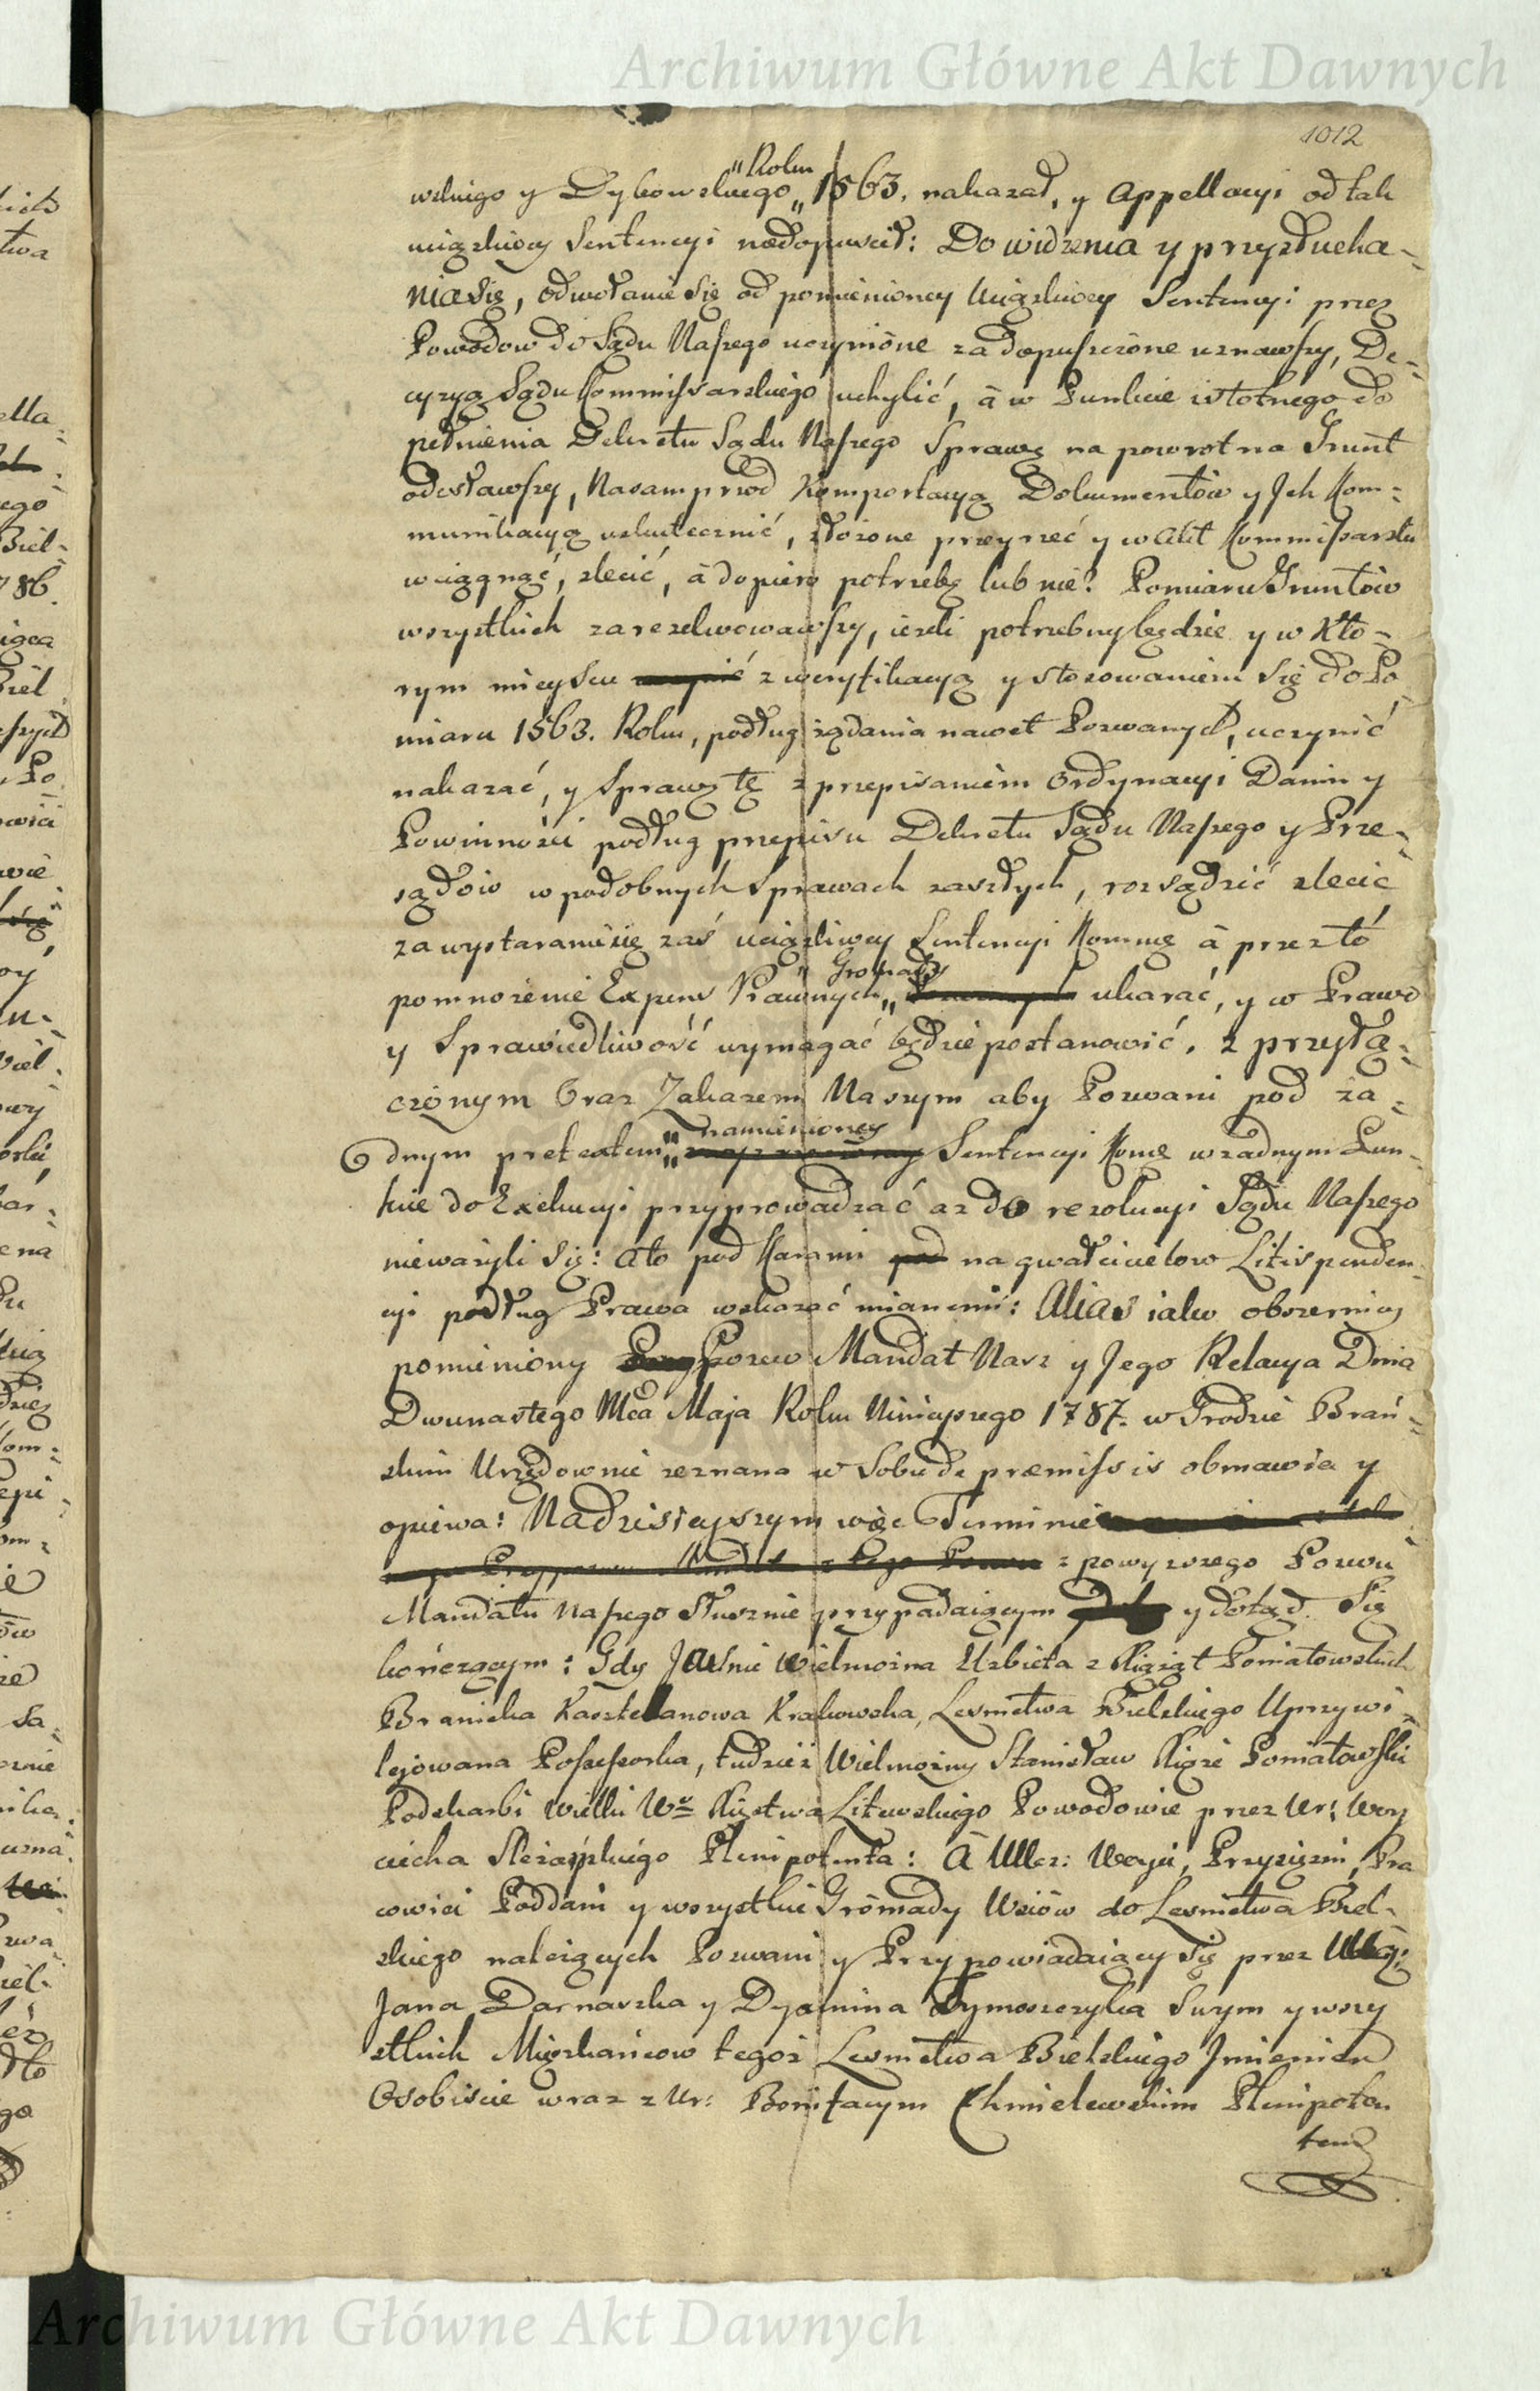 Archiwum Główne Akt Dawnych
1012
wskiego y Dybowskiego „Roku„ 1563. nakazał, y Appellacyi od tak
uciążliwey Sentencyi niedopuscił: Do widzenia y przysłucha-
nia się, odwołanie się od pomienioney Uciążliwey Sentencyi przez
Powodow do Sądu Naszego uczynióne za dopuszczóne uznawszy, De-
cyzyą Sądu Kommissarskiego uchylić, à w Punkcie istotnego do
pełnienia Dekretu Sądu Naszego Sprawę na powrot na Grunt
odesławszy, Nasamprzod Komportacyą Dokumentów y Jch Kom-
munikacyą uskutecznić, złożone przeyrzeć y w Akt Kommissarski
wciągnąć, zlecić, à dopiero potrzebę lub nie? Pomiaru Gruntów
wszystkich zarezelwowawszy, ieżeli potrzebny będzie y w Któ-
rym mieyscu z weryfikacyą y stosowaniem się do Po
miaru 1563. Roku, podług żądania nawet Pozwanych, uczynić
nakazać, y Sprawę tę z przepisaniem Ordynacyi Danin y
Powinności podług przepisu Dekretu Sądu Naszego y Prze-
sądów w podobnych Sprawach zaszłych, rozsądzić zlecić
za wystaranie się zaś uciążliwey Sentencyi Kommę à przez tó
pomnożenie Expens Prawnych „Gromady„ ukarać, y w Prawo
y Sprawiedliwość wymagać będzie postanowić. z przyłą-
czónym Oraz Zakazem Naszym aby Pozwani pod ża-
dnym pretextem „namienioney Sentencyi Komę w żadnym Pun-
kcie do Exekucyi przyprowadzać aż do rezolucyi Sądu Naszego
nieważyli się: à to pod Karami na gwałcicielow Litispenden-
cyi podług Prawa wskazać mianemi: Alias iako obszerniey
pomieniony Pozew Mandat Nasz y Jego Relacya Dnia
Dwunastego Mca Maja Roku Ninieyszego 1787. w Grodzie Brań-
skim Urzędownie zeznana w Sobie de præmissis obmawia y
opiewa: Na dzisieyszym więc Terminie
z powyższego Pozwu
Mandatu Naszego Słusznie przypadaiącym y dotąd Się
kończącym: Gdy Jaśnie Wielmożna Elżbieta z Xiążąt Poniatowskich
Branicka Kasztelanowa Krakowska, Lesnictwa Bielskiego Uprzywi-
lejowana Possessorka, tudzież Wielmożny Stanisław Xiąże Poniatowski
Podskarbi Wielki W° Xięstwa Litewskiego Powodowie przez Ur: Woy
ciecha Plenipotenta: à Woyci, Przysiężni, Pra
cowici Poddani y wszystkie Gromady Wsiów do Lesnictwa Biel-
skiego należących Pozwani y Przypowiadaiący się przez
Jana Darnaszka y Dyamina Tymoszczyka Swym y wszy
stkich Mieszkańcow tegoż Lesnictwa Bielskiego Jmieniem
Osobiscie wraz z Ur: Bonifacym Chmielewskim Plenipoten
tem
Archiwum Główne Akt Dawnych